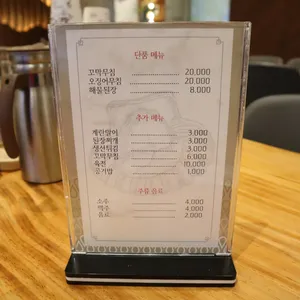 단품 메뉴
꼬막무침 20,000
오징어무침 20,000
해물된장 8,000
추가 메뉴
계란말이 3,000
된장찌개 3,000
생선튀김 3,000
꼬막무침 6,000
육전 10,000
공기밥 1,000
주류 음료
소주 4,000
맥주 4,000
음료 2,000